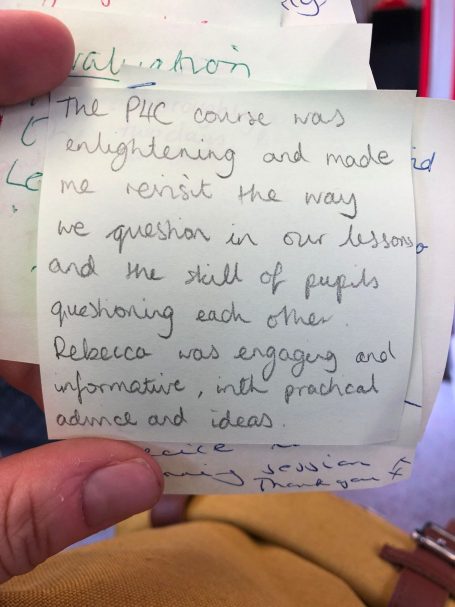 valuation
The P4C course was
enlightening and made
me revisit the way
we question in our lessons
and the skill of pupils
questioning each other.
Rebecca was engaging and
informative, with practical
advice and ideas.
session
Thank you x